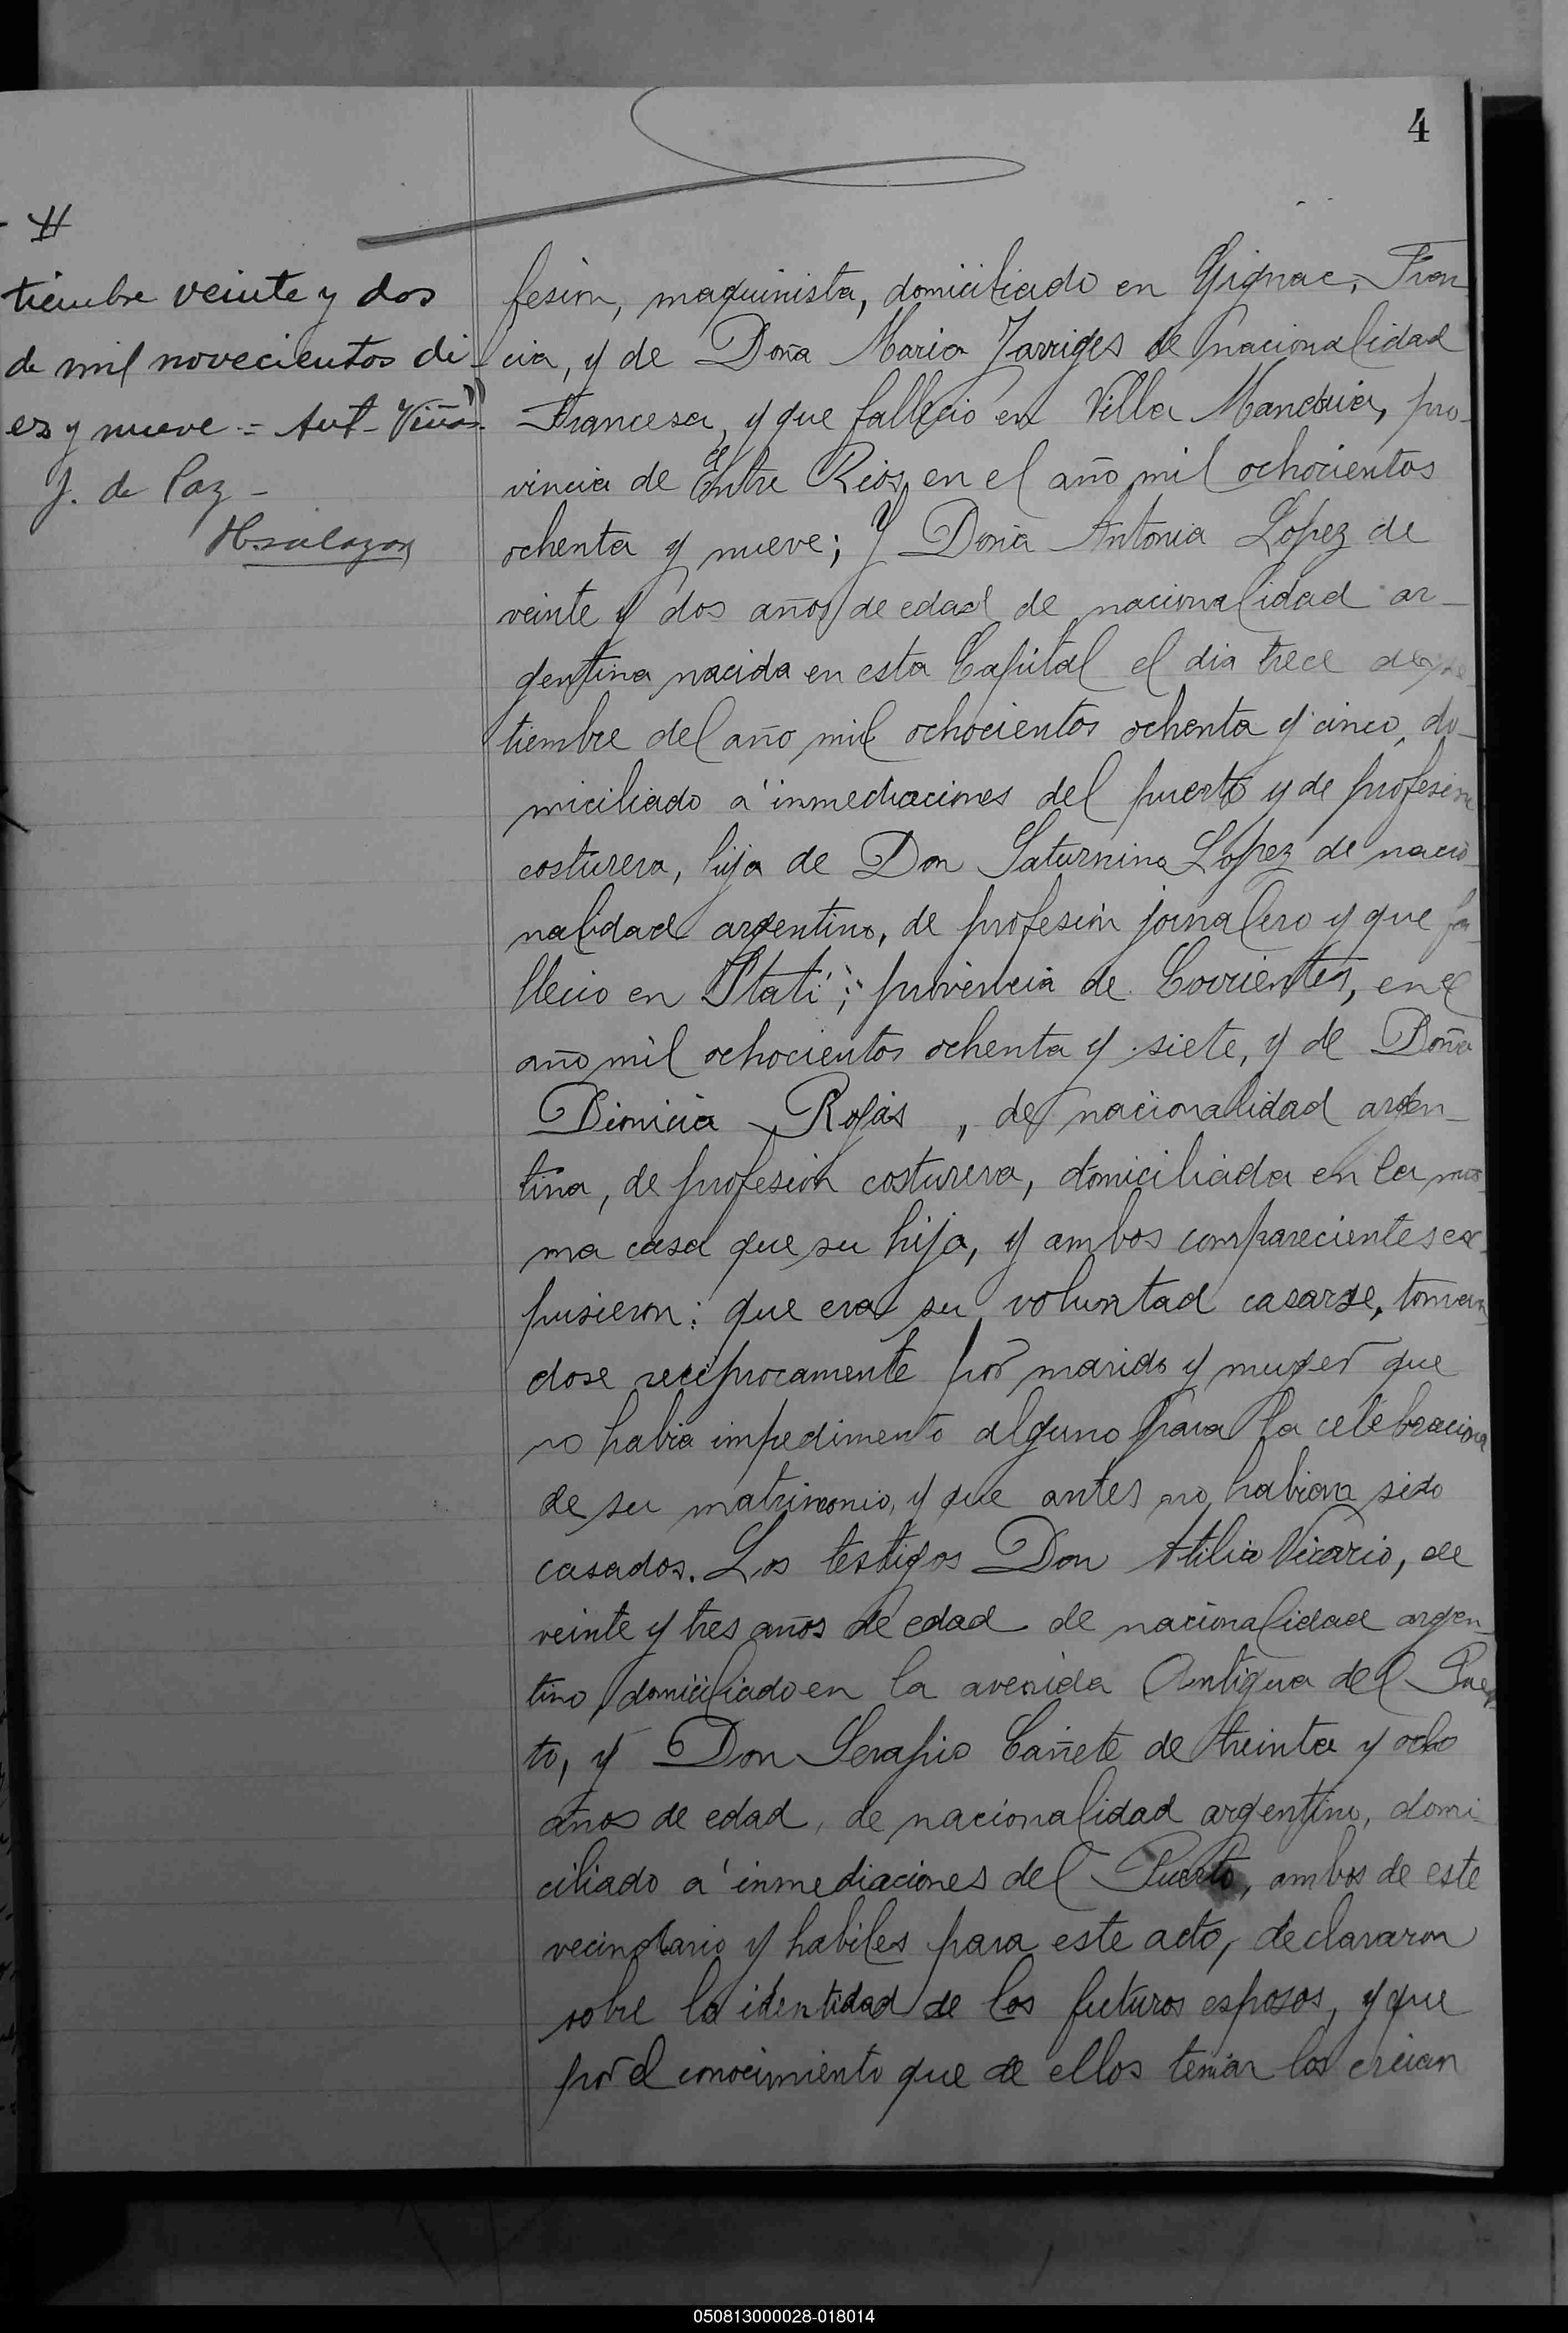 4
tiembre veinte y dos
de mil novecientos di
ez y nueve = Ant- Viñas
J. de Paz -
fesion, maquinista, domiciliado en Gignac, Fran
cia, y de Doña Maria Jarriges de nacionalidad
Francesa, y que fallecio en Villa pro-
vincia de Entre Rios, en el año mil ochocientos
ochenta y nueve; Y Doña Antonia Lopez de
veinte y dos años de edad de nacionalidad ar-
gentina nacida en esta Capital el dia trece de se-
tiembre del año mil ochocientos ochenta y cinco, do-
miciliado a' inmediaciones del puerto y de profesion
costurera, hija de Don Saturnino Lopez de nacio-
nalidad argentino, de profesion jornalero y que fa-
llecio en Itati, provincia de Corrientes, en el
año mil ochocientos ochenta y siete, y de Doña
Dionicia Rojas, de nacionalidad argen-
tina, de profesion costurera, domiciliada en la mis-
ma casa que su hija, y ambos comparecientes ex-
pusieron: que era su voluntad casarse, toman
dose reciprocamente por marido y mujer que
no habia impedimento alguno para la celebracion
de su matrimonio, y que antes no habian sido
casados. Los testigos Don Atilio Vicario, de
veinte y tres años de edad de nacionalidad argen-
tino domiciliado en la avenida Antigua del Puer
to, y Don Serapio Cañete de treinta y ocho
años de edad, de nacionalidad argentino, domi-
ciliado a' inmediaciones del Puerto, ambos de este
vecindario y habiles para este acto, declararon
sobre la identidad de los futuros esposos, y que
por el conocimiento que de ellos tenian los creian
050813000028-018014